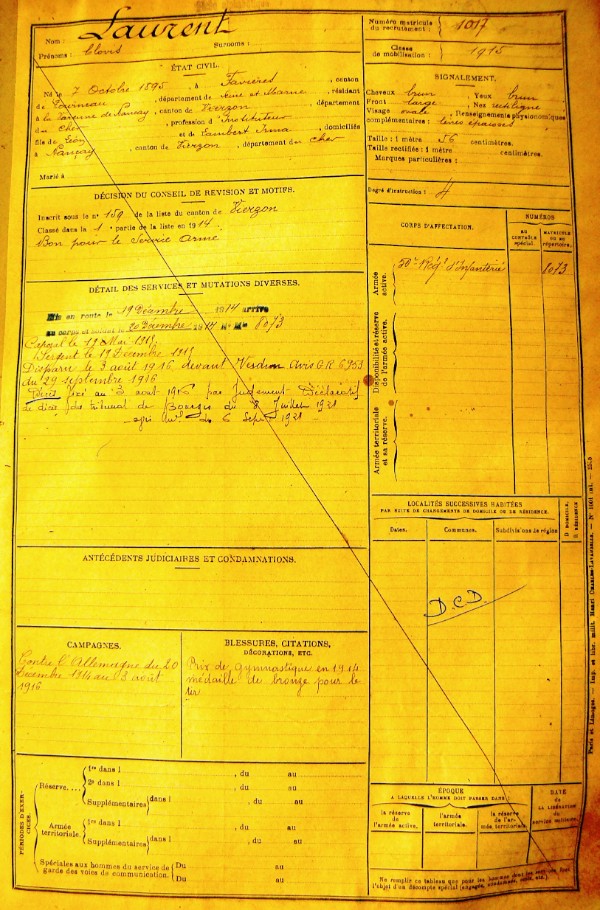 Nom : Laurent
Prénoms : Clovis Surnoms :
ÉTAT CIVIL.
Né le 7 Octobre 1895, à Favières, canton
de Tournan, département de Seine et Marne, résidant
à la Varenne de Nançay, canton de Vierzon, département
du Cher, profession d'Instituteur
fils de Léon et de Lambert Irma, domiciliés
à Nançay, canton de Vierzon, département du Cher
Marié à
DÉCISION DU CONSEIL DE REVISION ET MOTIFS.
Inscrit sous le nº 159 de la liste du canton de Vierzon
Classé dans la 1 partie de la liste en 1914.
Bon pour le Service Armé
DÉTAIL DES SERVICES ET MUTATIONS DIVERSES.
Mis en route le 19 Décembre 1914 arrivé
au corps et le 20 Décembre 1914 Nº Mle 8073
Caporal le 19 Mai 1915
Sergent le 19 Décembre 1915
Disparu le 3 août 1916 devant Verdun Avis GR 6953
du 29 septembre 1916
Décès fixé au 3 août 1916 par Jugement Déclaratif
de décès du tribunal de Bourges du 8 Juillet 1921
du 6 Sept 1921
ANTÉCÉDENTS JUDICIAIRES ET CONDAMNATIONS.
CAMPAGNES.
Contre l'Allemagne du 20
Décembre 1914 au 3 août
1916
BLESSURES, CITATIONS,
DÉCORATIONS, ETC.
Prix de gymnastique en 1914
médaille de bronze pour le
tir
PÉRIODES D'EXERCICES.
Réserve....
1re dans l , du au
2e dans l , du au
Supplémentaires dans l , du au
Armée territoriale.
1re dans l , du au
Supplémentaires dans l , du au
Spéciales aux hommes du service de
gardes des voies de communication.
Du au
Du au
Numéro matricule
du recrutement : 1017
Classe
de mobilisation : 1915
SIGNALEMENT.
Cheveux brun Yeux brun
Front large, Nez rectiligne
Visage ovale, Renseignements physionomiques
complémentaires : lèvres épaisses
Taille : 1 mètre 56 centimètres.
Taille rectifiée : 1 mètre centimètres.
Marques particulières :
Degré d'instruction : 4
CORPS D'AFFECTATION.
NUMÉROS
AU CONTRÔLE spécial.
MATRICULE OU AU répertoire.
Armée active.
Régt d'Infanterie 8073
Disponibilité et réserve
de l'armée active.
Armée territoriale
et sa réserve.
LOCALITÉS SUCCESSIVES HABITÉES
PAR SUITE DE CHANGEMENTS DE DOMICILE OU DE RÉSIDENCE.
Dates. Communes. Subdivisions de région
D DOMICILE.
R RÉSIDENCE
D.C.D.
ÉPOQUE
A LAQUELLE L'HOMME DOIT PASSER DANS :
la réserve
de
l'armée active.
l'armée
territoriale.
la réserve
de l'armée territoriale.
DATE
DE
LA LIBÉRATION
du service militaire.
Ne remplir ce tableau que pour les hommes dont les services font
l'objet d'un décompte spécial (engagés, condamnés, omis, etc.).
Paris et Limoges. — Imp. et libr. milit. Henri CHARLES-LAVAUZELLE.